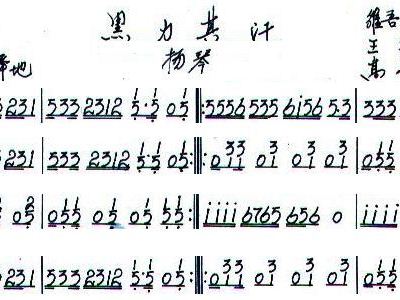 黑力其汗
维吾
扬琴
王
地
231 | 533 2312 5·5 05 :‖: 5556 535 6i56 53 | 333
231 | 533 2312 5·5 05 :‖: 011 01 01 01 | 055
05 | 055 05 05 55 :‖: iiii 6765 656 0 | iiii
231 | 533 2312 5·5 05 :‖: 011 01 01 01 | 055